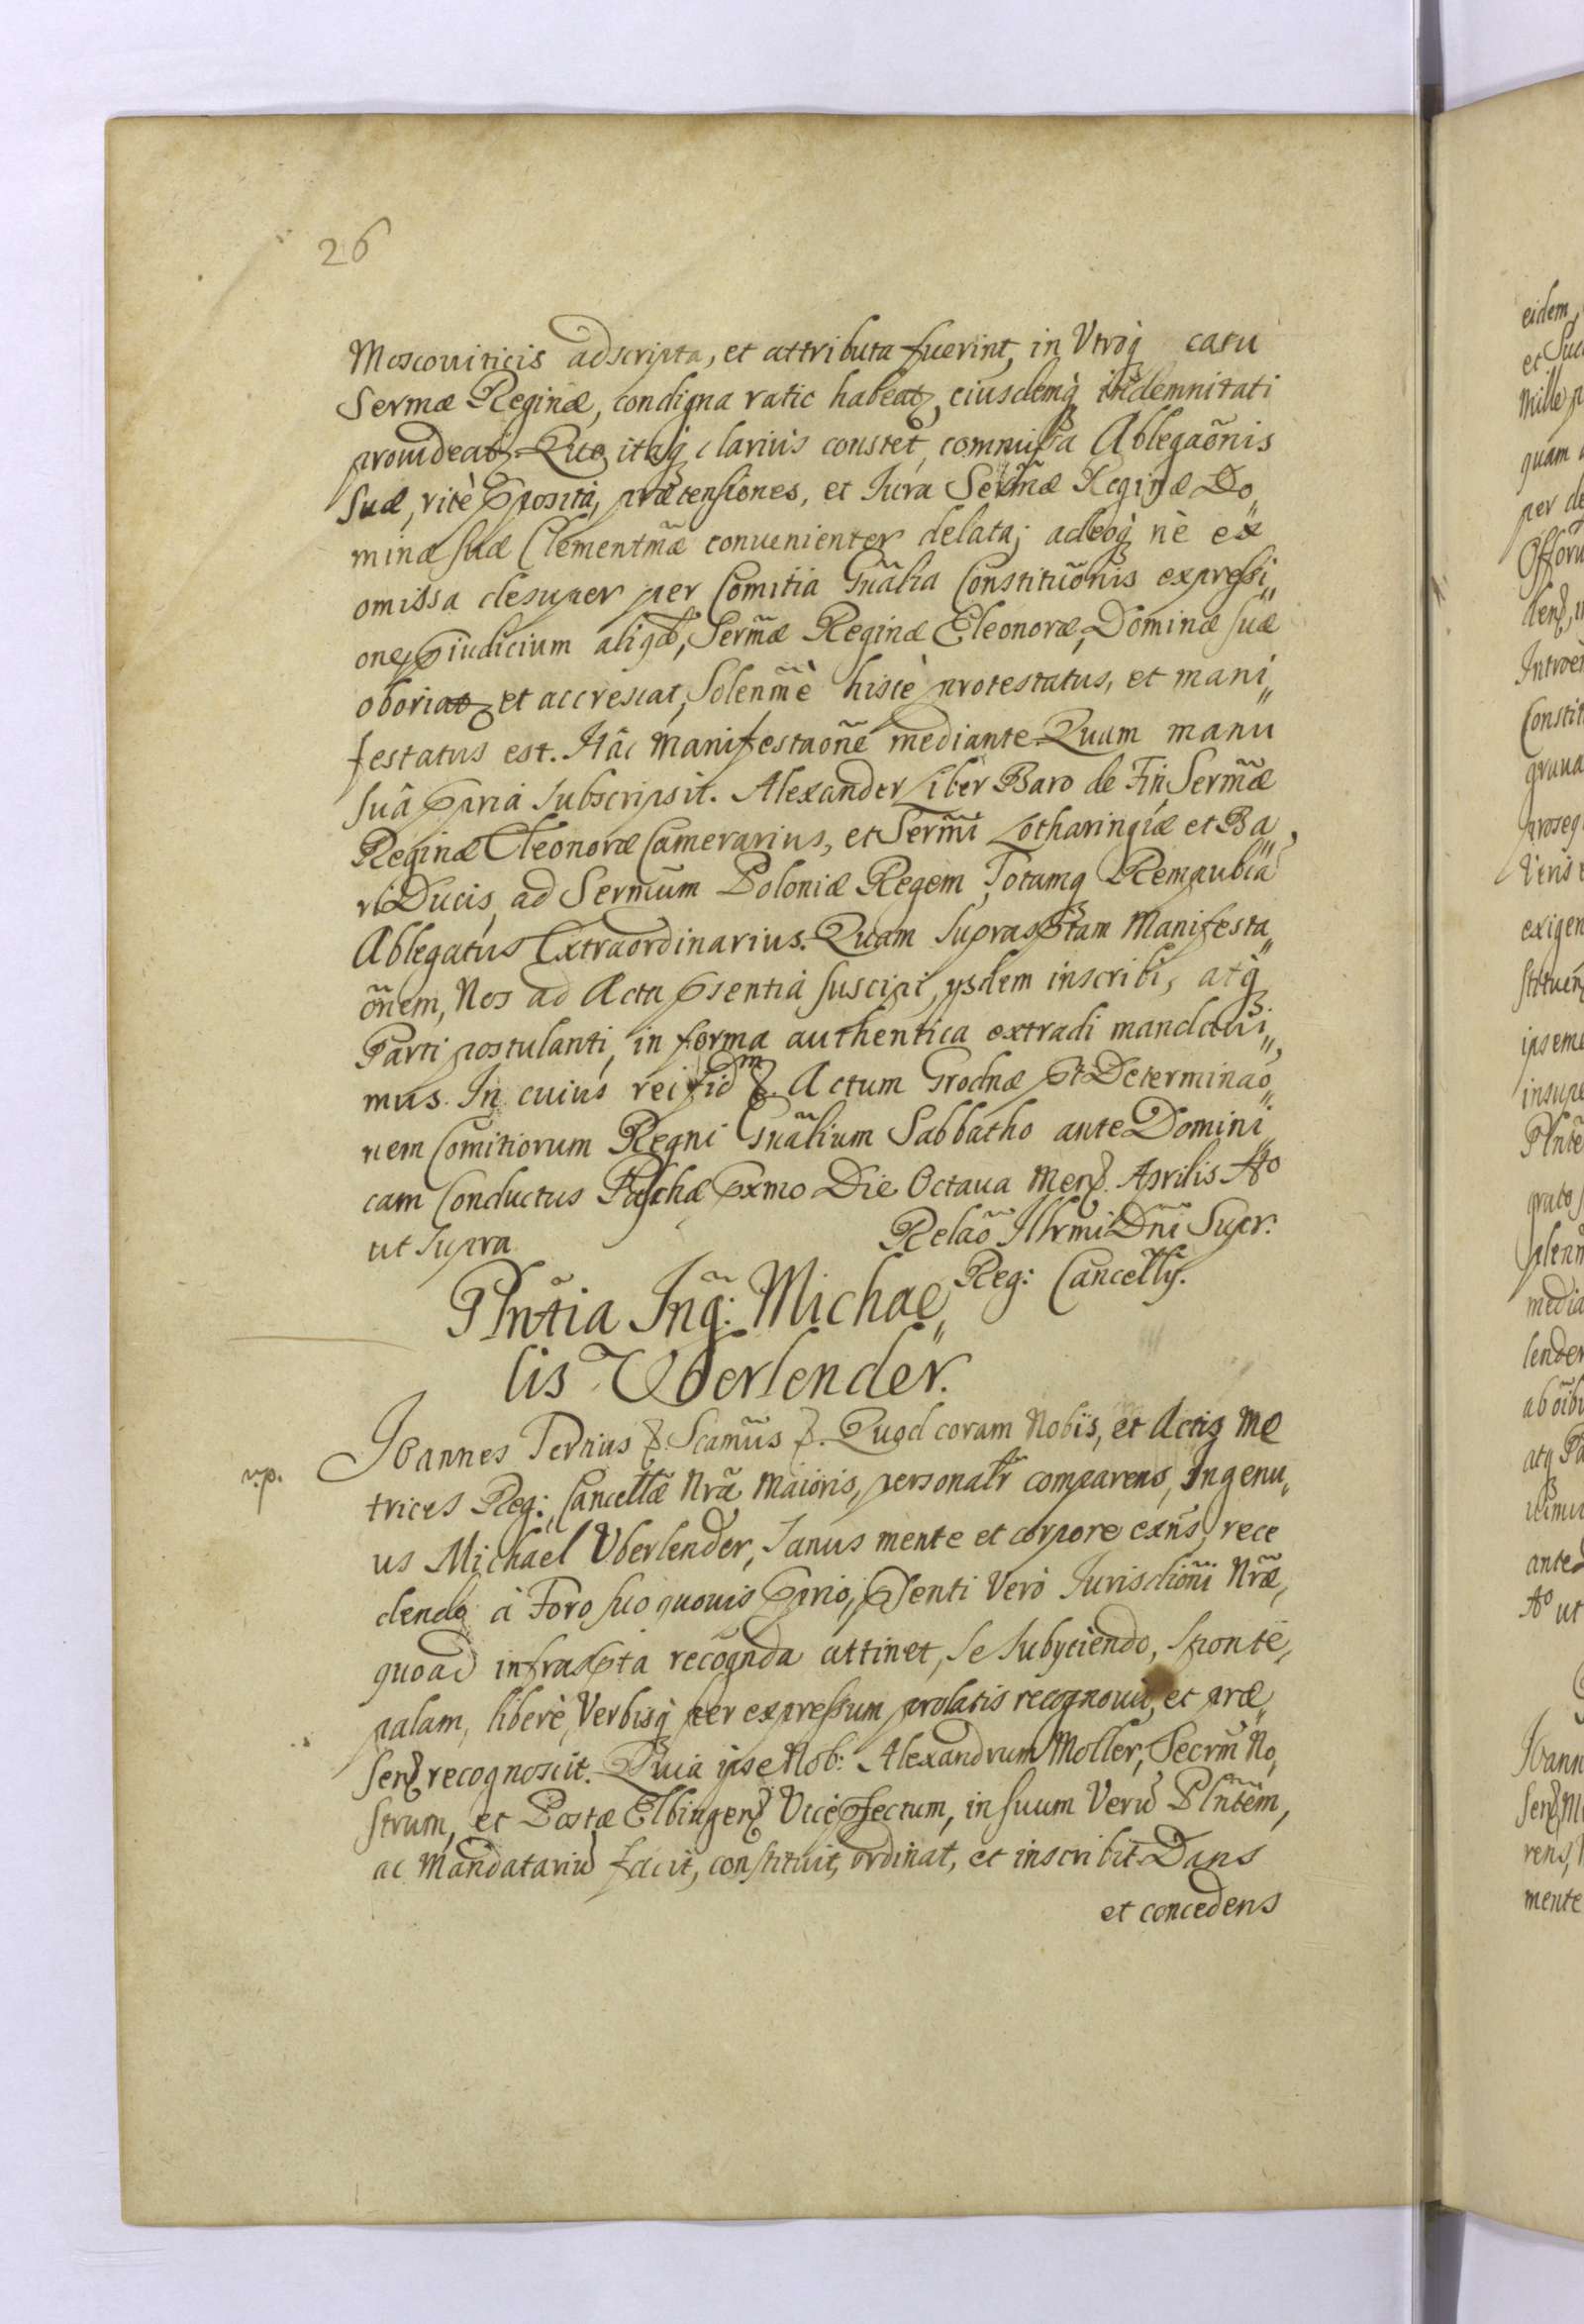 26
Moscouiticis adscripta, et attributa fuerint, in Vtroq́ casu
Sermæ Reginæ, condigna ratio habeatꝫ, eiusdemq́ indemnitati
prouideatꝫ. Quo itaq́ clarius constet, commissa Ablegaõnis
suæ, ritè ꝓposita, prætensiones, et Iura Serm̃æ Reginæ Do„
minæ suæ Clementm̃æ conuenienter delata; adeoq́ nè ex
omissa desuper per Comitia Gñalia Constituõnis expressi„
one, p̃iudicium aliqđ, Serm̃æ Reginæ Eleonoræ, Dominæ suæ
oboriatꝫ et accrescat, Solenm̃è hiscè protestatus, et mani„
festatus est. Hâc Manifestaõne mediante. Quam manu
suâ ꝓpria subscripsit. Alexander Liber Baro de Fin, Serm̃æ
Reginæ Eleonoræ Camerarius, et Serm̃i Lotharingiæ et Ba„
ri Ducis, ad Sermũm Poloniæ Regem, Totamq́ Rempubĺcã
Ablegatus Extraordinarius. Quam suprasc̃ptam Manifesta„
õnem, Nos ad Acta p̃sentia suscipi, ijsdem inscribi, atq́
Parti postulanti, in forma authentica extradi mandaui„
mus. In cuius rei fidᵐ &. Actum Grodnæ p̃t Determinaõ„
nem Comitiorum Regni Gñalium Sabbatho ante Domini„
cam Conductus Paschæ ꝓxmo Die Octaua Mens. Aprilis Aº
ut supra
Relaõ Illrmi Dñi Supr.
Reg: Cancellrij.
Plñtia Ing̃: Michae„
lis Vberlender.
Ioannes Tertius &. Sc̃amus &. Quod coram Nobis, et Actis Me
n.p.
trices Reg: Cancellæ Nrã Maioris, personalr̃ comparens, Ingenu„
us Michael Vberlender, sanus mente et corpore exñs, rece
dendo à Foro suo quouis ꝓprio, p̃senti Verò Iurisdiõni Nrẽ,
quoad infrasc̃pta recog̃nda attinet, se subyciendo, sponte,
palam, liberè, Verbisq́ per expressum prolatis recognouit, et præ„
sens recognoscit. Quia ipse Nob: Alexandrum Moller, Secrm̃ No„
strum, et Postæ Elbingens Vicep̃fectum, in suum Verũ Plñtem,
ac Mandatariũ facit, constituit, ordinat, et inscribit. Dans
et concedens